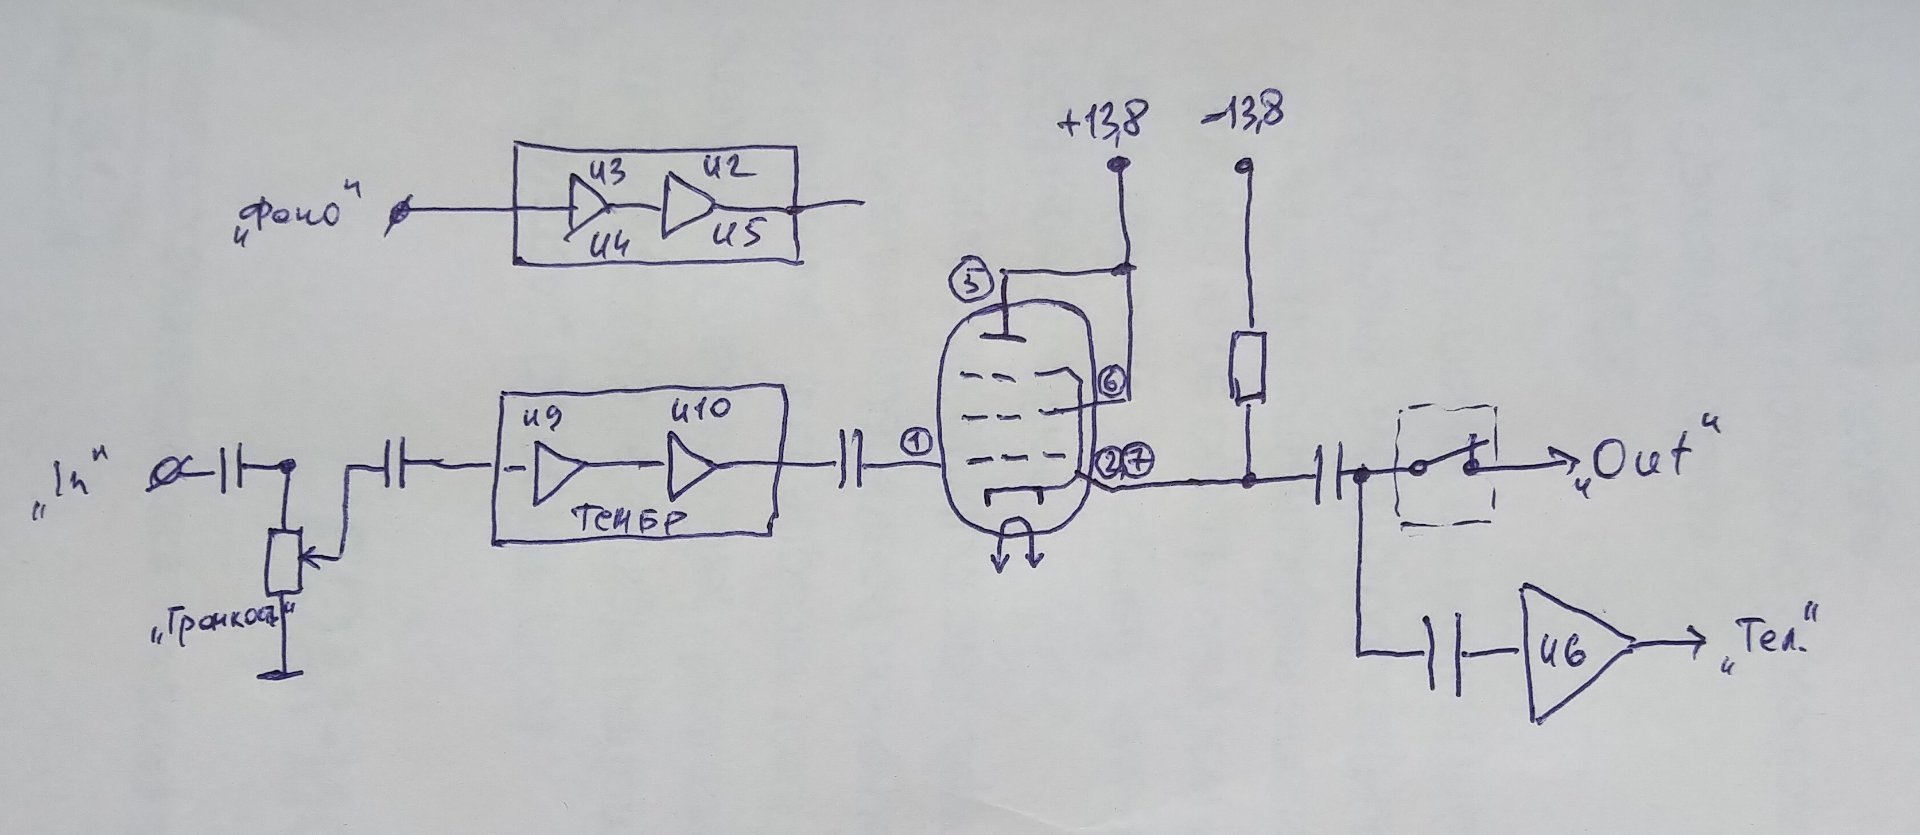 +13,8
-13,8
И3
И2
„Фоно“
И4
И5
5
6
И9
И10
1
2,7
„In“
„Out“
Тембр
„Громкость“
И6
„Тел.“